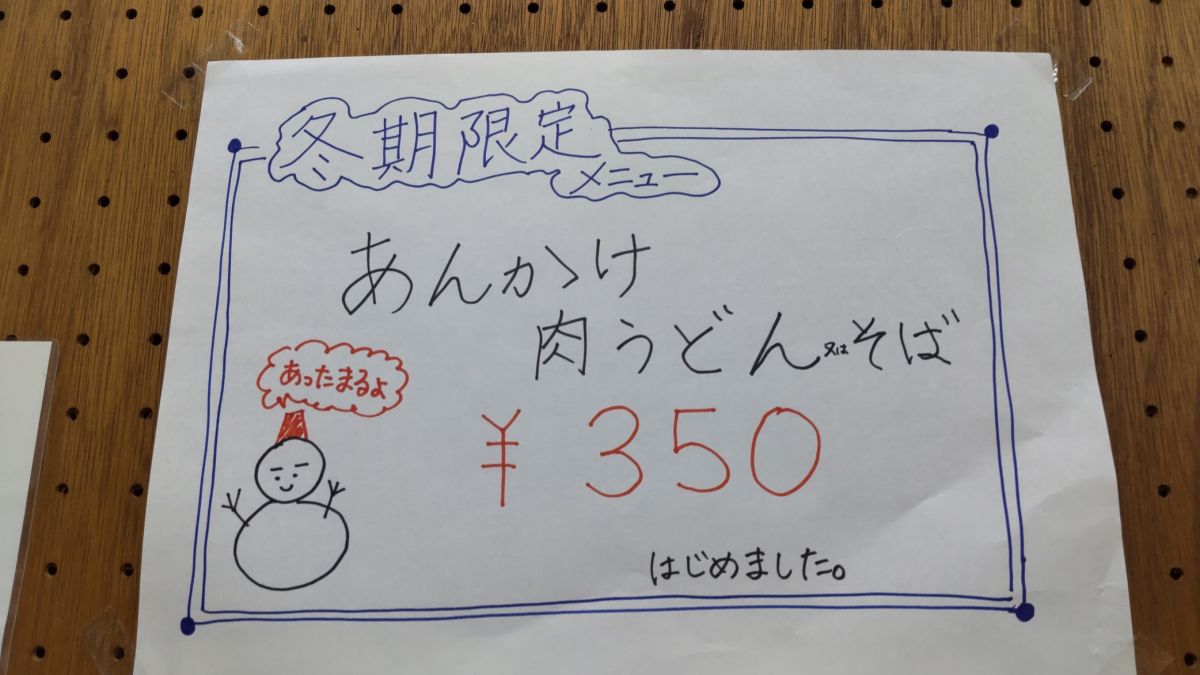 冬期限定
メニュー
あんかゝけ
肉うどん又はそば
あったまるよ
¥350
はじめました。